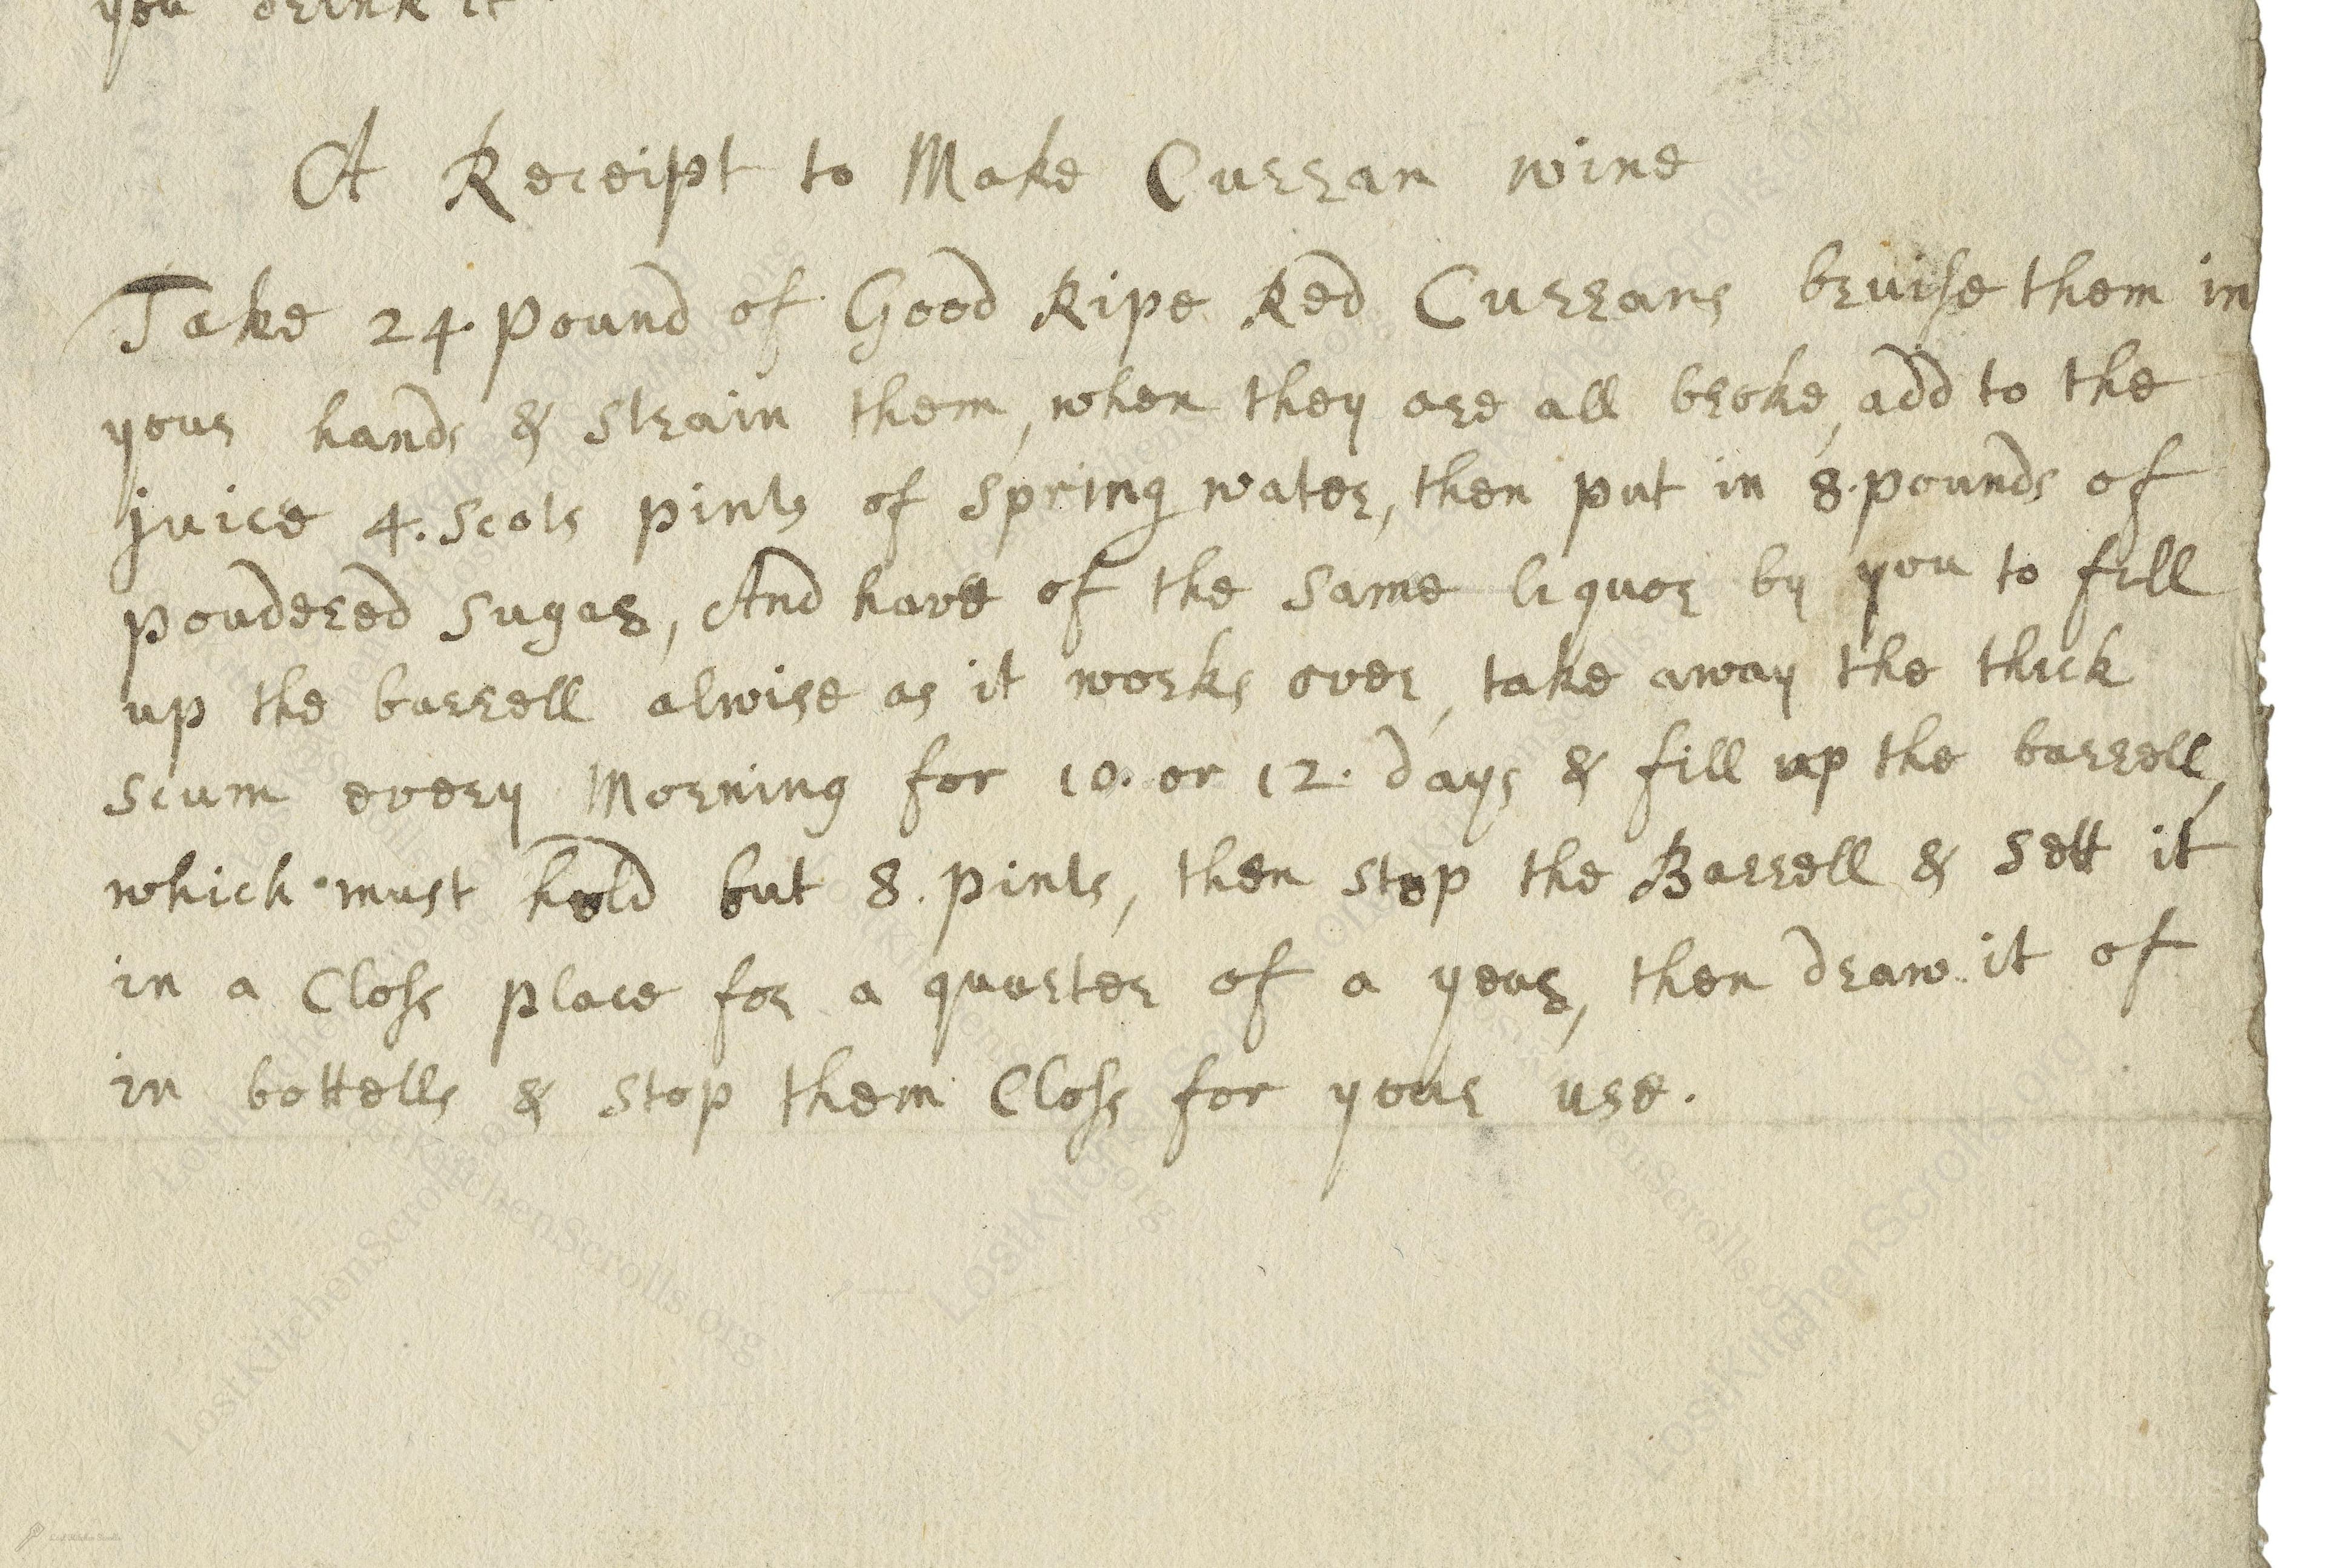 you drink it
A Receipt to Make Curran wine
Take 24. pound of Good Ripe Red Currans bruise them in
your hands & strain them, when they are all broke, add to the
juice 4. scots pints of spring water, then put in 8. pounds of
poudered sugar, And have of the same liquor by you to fill
up the barrell alwise as it works over, take away the thick
scum every Morning for 10. or 12. days & fill up the barrell,
which must hold but 8. pints, then stop the Barrell & sett it
in a Closs place for a quarter of a year, then draw it of
in bottells & stop them Closs for your use.